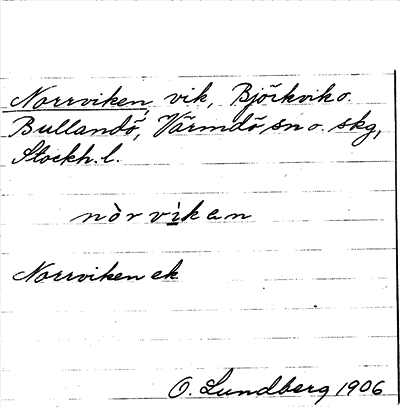 Norrviken, vik, Björkvik o.
Bullandö, Värmdö sn o. skg,
Stockh. l.
nòrvikan
Norrviken ek
O. Lundberg 1906